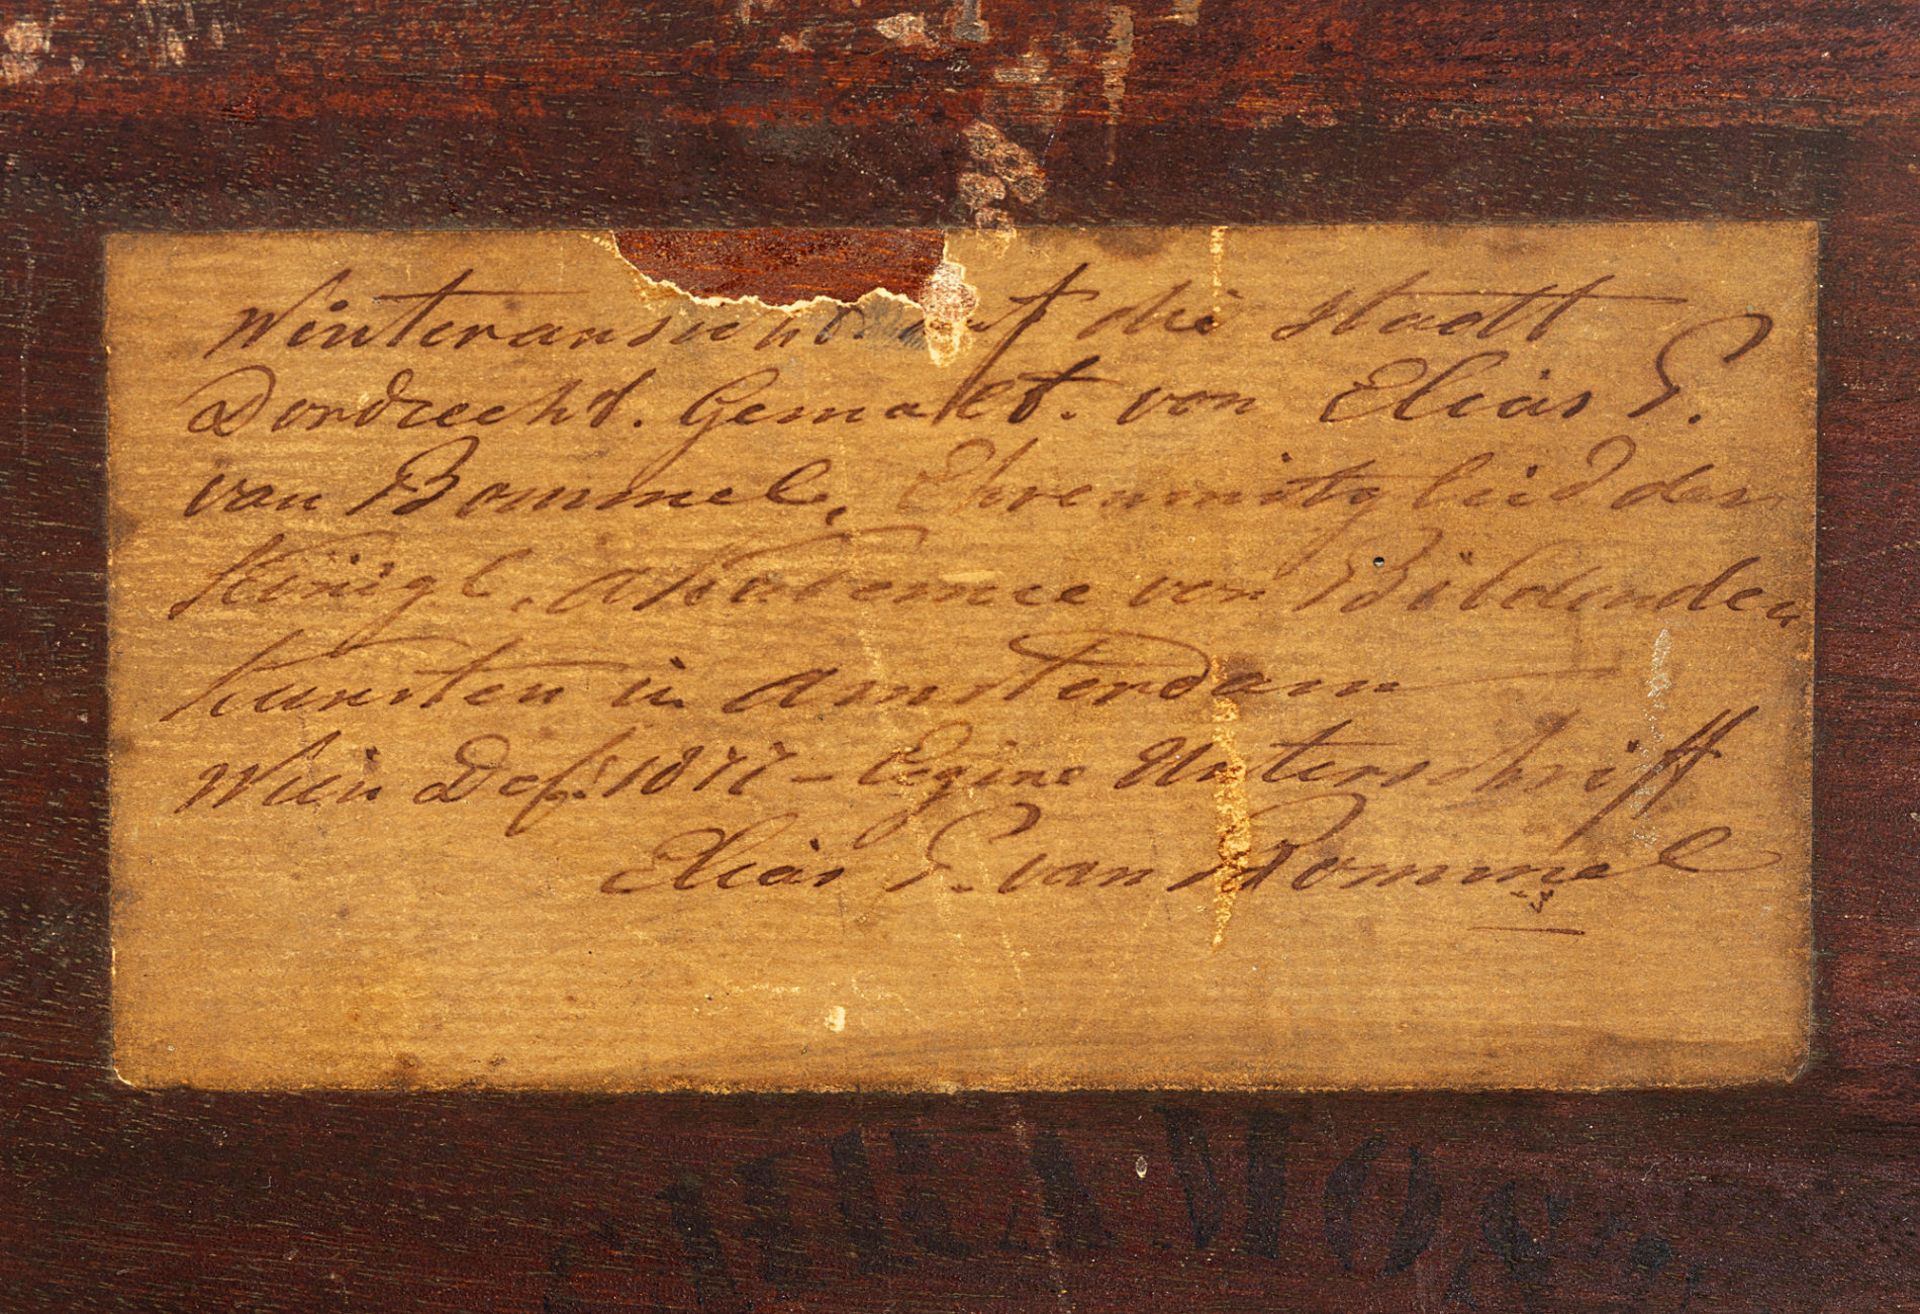 Winteransicht auf die Stadt
Dordrecht. Gemalt. von Elias P.
van Bommel, Ehrenmitglied der
Königl. Akademie von Bildenden
Kunsten in Amsterdam
Wien 1877 – Eigene Unterschrift
Elias P. van Bommel